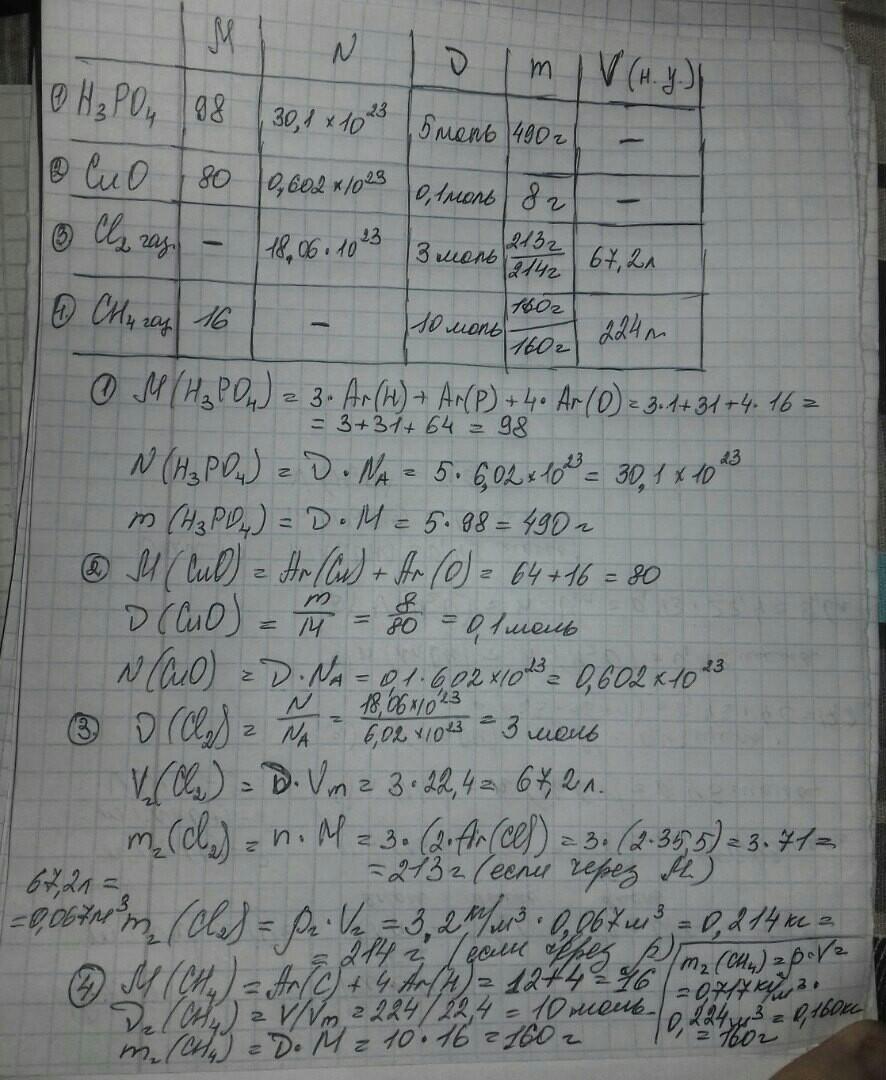 M N D m V (н.у.)
① H₃PO₄ 98 30,1 × 10²³ 5 моль 490 г —
② CuO 80 0,602 × 10²³ 0,1 моль 8 г —
③ Cl₂ газ. — 18,06 · 10²³ 3 моль 213г/214г 67,2 л
④ CH₄ газ 16 — 10 моль 160г/160г 224 л
① M(H₃PO₄) = 3 · Ar(H) + Ar(P) + 4 · Ar(O) = 3·1+31+4·16 =
= 3+31+64 = 98
N(H₃PO₄) = D · Nᴀ = 5 · 6,02 × 10²³ = 30,1 × 10²³
m (H₃PO₄) = D · M = 5 · 98 = 490 г
② M(CuO) = Ar(Cu) + Ar(O) = 64+16 = 80
D(CuO) = m/M = 8/80 = 0,1 моль
N(CuO) = D · Nᴀ = 0,1 · 6,02 × 10²³ = 0,602 × 10²³
③ D(Cl₂) = N/Nᴀ = 18,06×10²³/6,02×10²³ = 3 моль
Vг(Cl₂) = D · Vm = 3 · 22,4 = 67,2 л.
mг(Cl₂) = n · M = 3 · (2·Ar(Cl)) = 3 · (2·35,5) = 3·71 =
= 213 г (если через M)
67,2 л =
= 0,067 м³ mг(Cl₂) = ρг · Vг = 3,2 кг/м³ · 0,067 м³ = 0,214 кг =
= 214 г (если через ρ)
④ M(CH₄) = Ar(C) + 4·Ar(H) = 12+4 = 16
Dг(CH₄) = V/Vm = 224/22,4 = 10 моль
mг(CH₄) = D · M = 10 · 16 = 160 г
mг(CH₄) = ρ·V =
= 0,717 кг/м³ ·
0,224 м³ = 0,160 кг
= 160 г